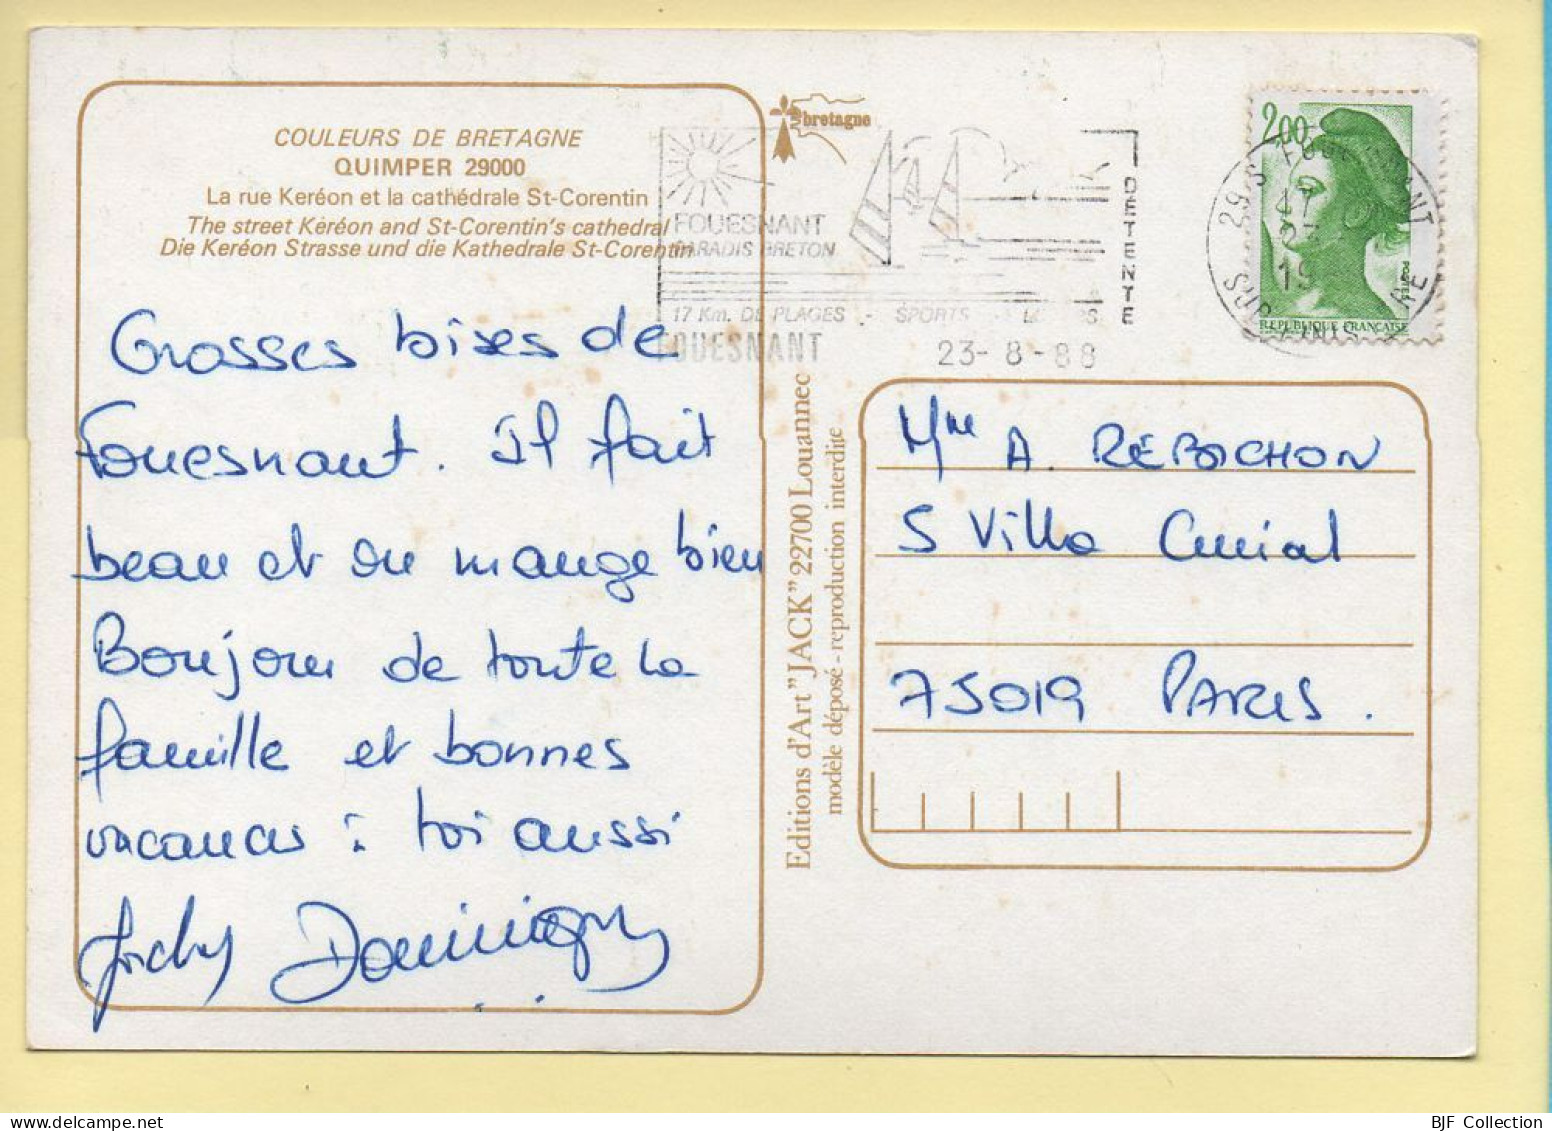 COULEURS DE BRETAGNE
QUIMPER 29000
La rue Keréon et la cathédrale St-Corentin
The street Kéréon and St-Corentin's cathedral
Die Keréon Strasse und die Kathedrale St-Corentin
bretagne
FOUESNANT
PARADIS BRETON
17 Km. DE PLAGES - SPORTS -
FOUESNANT
23-8-88
DETENTE
2,00
REPUBLIQUE FRANÇAISE
Grosses bises de
Fouesnant. Il fait
beau et on mange bien
Bonjour de toute la
famille et bonnes
vacances à toi aussi
Dominique
Editions d'Art "JACK" 22700 Louannec
modèle déposé - reproduction interdite
Mme A. REBOCHON
5 Villa
75019 PARIS.
BJF Collection